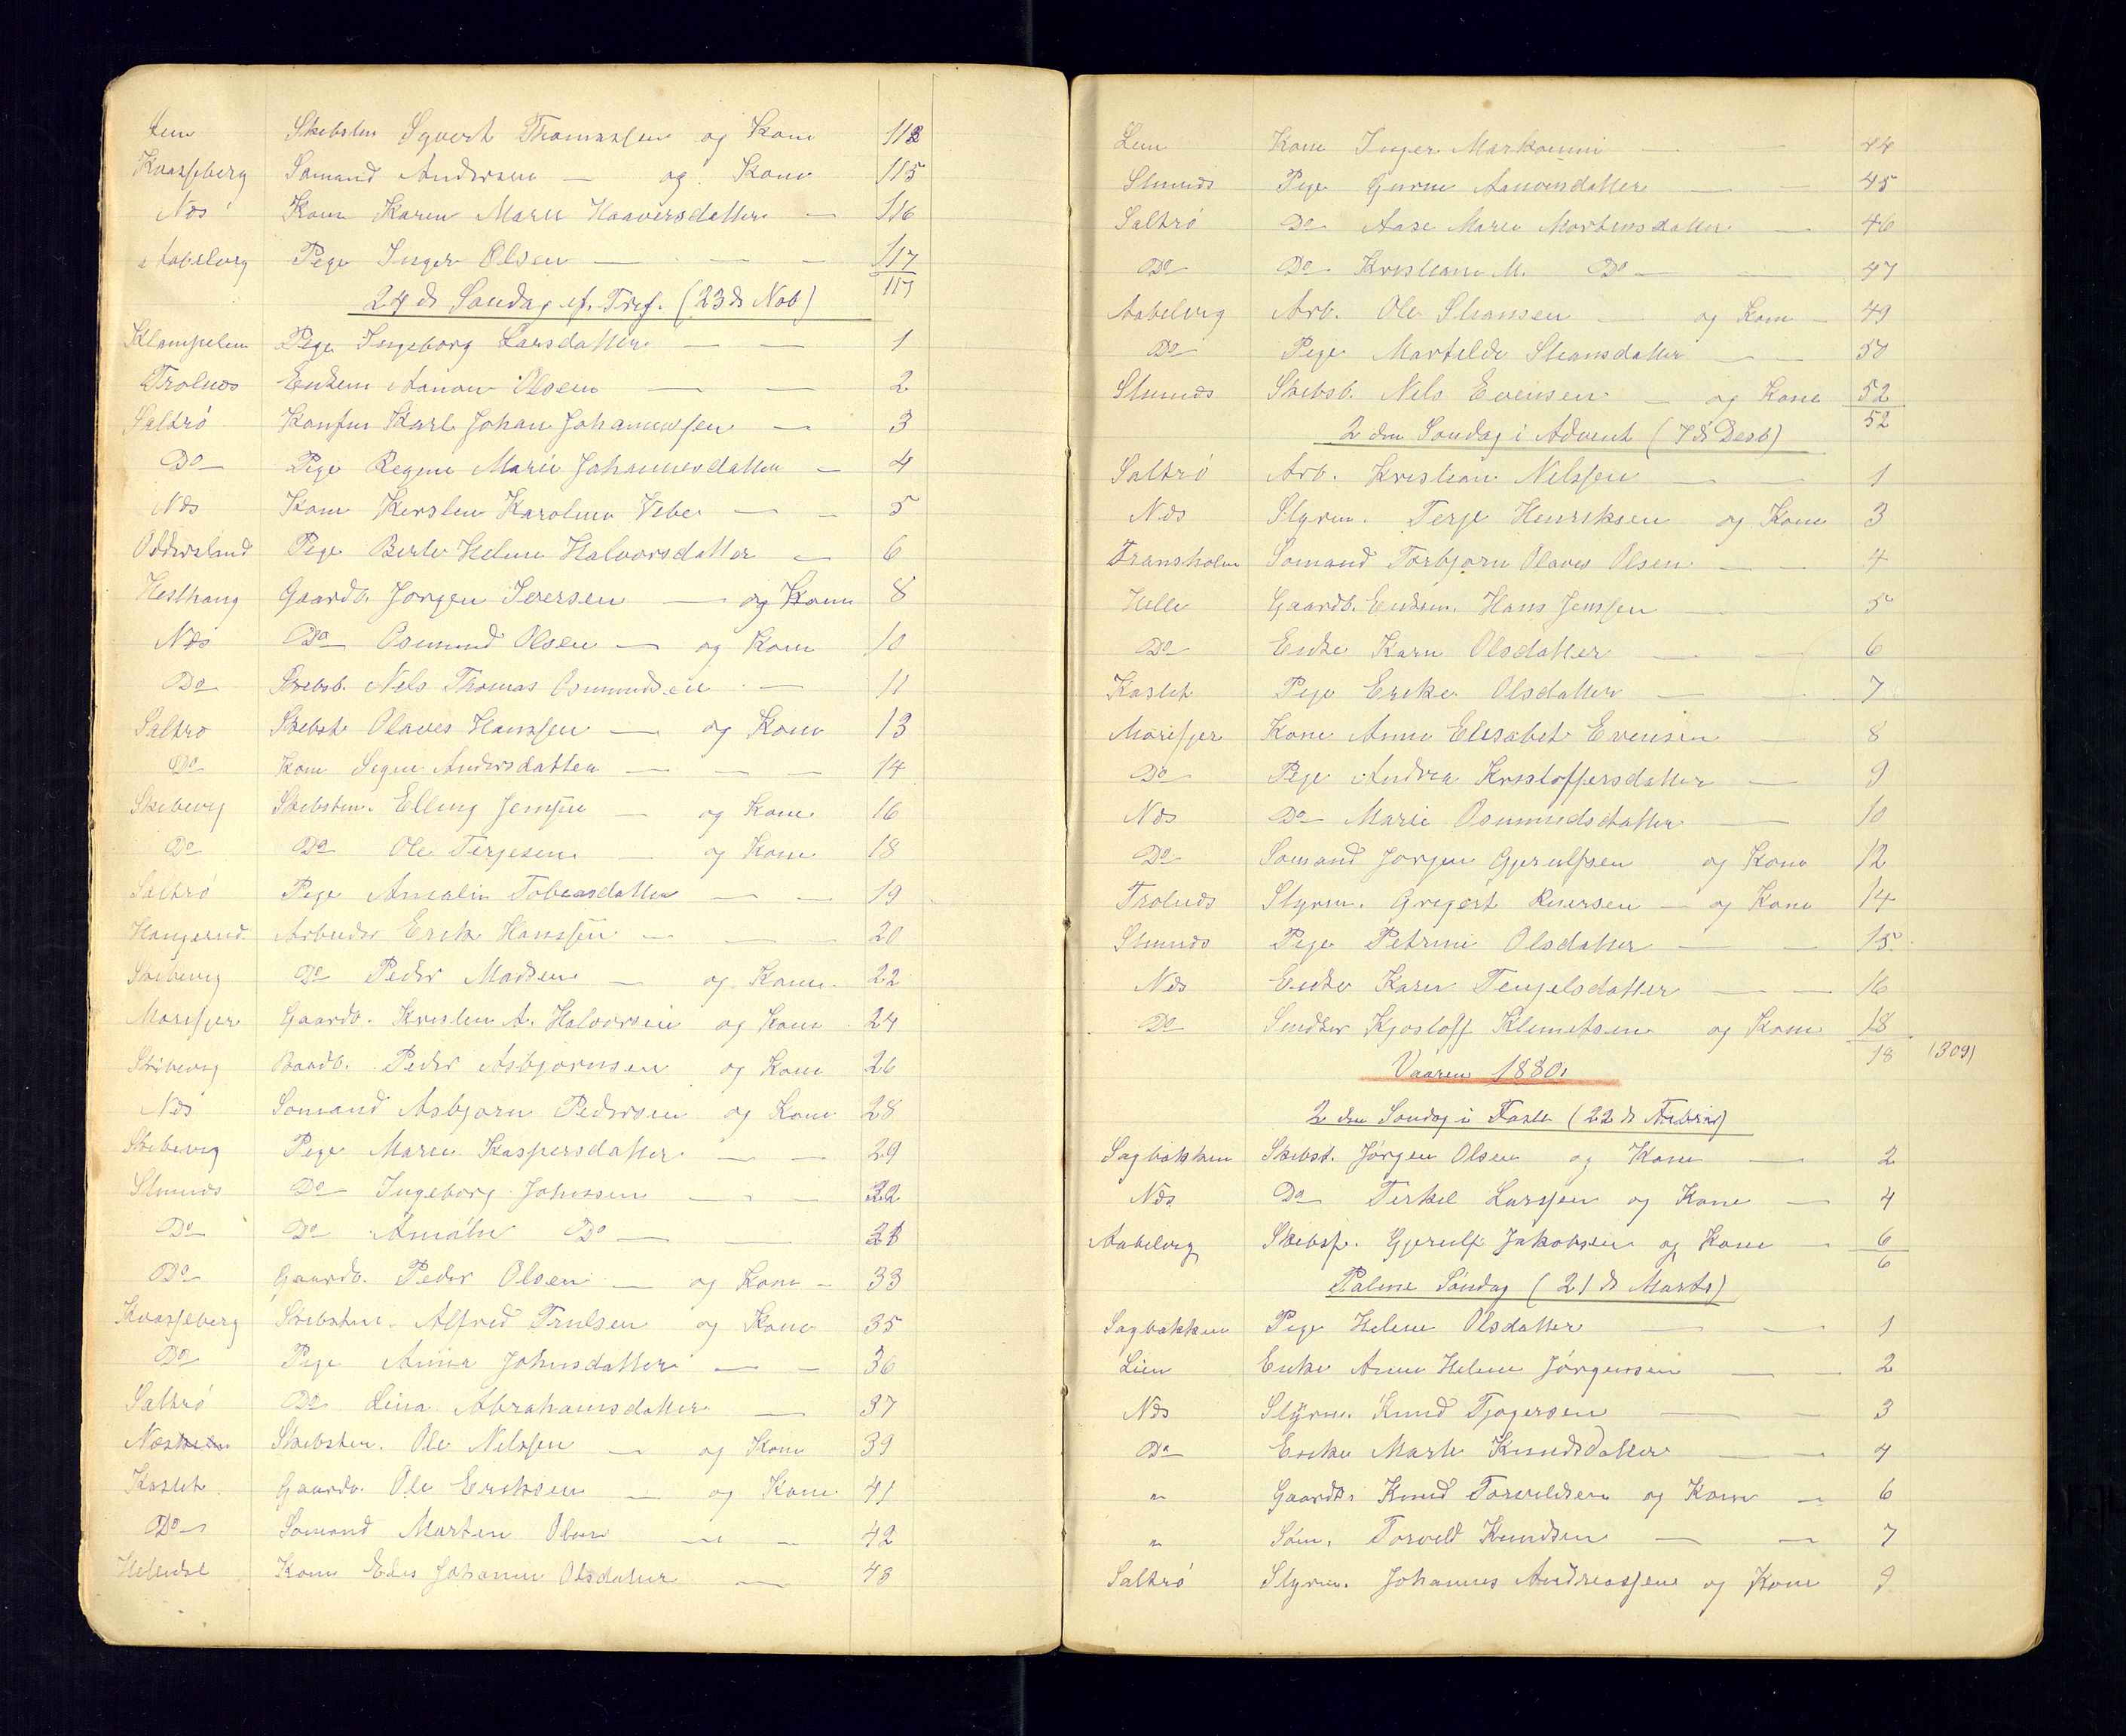 Skibstm Syvert Thomassen og Kone 112
Kvasseberg Sømand Andersen — og Kone 115
Næs Kone Karen Marie Haaversdatter — 116
Aabelvig Pige Inger Olsen — — — 117
117
24 de Søndag ef. Tref. (23 de Nob)
Pige Ingeborg Larsdatter — — 1
Trolnæs Enkem Aanon Olsen — — 2
Saltrö Karl Johan Johannessen — 3
Do Pige Regine Marie Johannesdatter — 4
Næs Kone Kirsten Karoline Vibe — — 5
Oddersland Pige Berte Helene Halvorsdatter — 6
Hesthang Gaardb. Jørgen Iversen — og Kone 8
Næs Do Osmund Olsen — og Kone 10
Do Skibsb. Nels Thomas Osmundsen — 11
Saltrø Skibst Olaves Hanssen — og Kone 13
Do Kone Segne Andersdatter — — — 14
Skibevig Skibstm. Elling Jenssen — og Kone 16
Do Do Ole Terjesen — og Kone 18
Saltrö Pige Amalie Tobiasdatter — — 19
Arbeider Erik Hanssen — — — 20
Skibevig Do Peder Madsen — og Kone 22
Moresjer Gaardb. Kristen A. Halvorsen og Kone 24
Skibevig Gaardb. Peder Asbjørnsen og Kone 26
Næs Sømand Asbjørn Pedersen og Kone 28
Skibevig Pige Marie Kaspersdatter — — 29
Slunæs Do Ingeborg Johnsen — — 32
Do Do Amalie Do — — 31
Do Gaardb. Peder Olsen — og Kone — 33
Kvasseberg Skibstm. Alfred Trulsen og Kone 35
Do Pige Anna Johnsdatter — — 36
Saltrö Do Lina Abrahamsdatter — 37
Næs Skibstm. Ole Nilssen — og Kone 39
Kaslet Gaardb. Ole Eriksen — og Kone 41
Do Sømand Morten Olsen — — 42
Kone Johanne Olsdatter — 43
Lien Kone Inger — — 44
Slunæs Pige Gurine Aanonsdatter — — 45
Saltrö Do Aase Marie Mortensdatter — 46
Do Do Kristiane M. Do — — 47
Aabelvig Arb. Ole Stiansen — og Kone — 49
Do Pige Martilde Stiansdatter — — 50
Slunæs Skibsb. Nels Evensen — og Kone 52
52
2 den Søndag i Advent (7 de Desb)
Saltrö Arb. Kristian Nilssen — — 1
Næs Styrm. Terje Henriksen og Kone 3
Sømand Torbjørn Olaves Olsen — — 4
Helle Gaardb. Enkem. Hans Jenssen — 5
Do Enke Karn Olsdatter — — 6
Kaslet Pige Erike Olsdatter — — 7
Moresjer Kone Anne Elesabet Evensen — 8
Do Pige Andrea Kristoffersdatter — 9
Næs Do Marie Osmundsdatter — 10
Do Sømand Jørgen Gjerulfsen og Kone 12
Trolnæs Styrm. Gregert Reiersen — og Kone 14
Slunæs Pige Petrine Olsdatter — — 15
Næs Enke Karen Tengelsdatter — — 16
Do Kjøstolf Klemetsen og Kone 18
18 (309)
Vaaren 1880.
2 den Søndag i Faste (22 de Febru)
Sagbakken Skibst. Jørgen Olsen og Kone — 2
Næs Do Terkel Larssen og Kone — 4
Aabelvig Skibsf. Gjerulf Jakobsen og Kone — 6
6
Palme Søndag (21 de Marts)
Sagbakken Pige Helene Olsdatter — — 1
Lien Enke Anne Helene Jørgensen — — 2
Næs Styrm. Knud Tjøgersen — — 3
Do Enke Marte Knudsdatter — — 4
" Gaardb. Knud Torveldsen og Kone — 6
" Søm. Torveld Knudsen — — 7
Saltrö Styrm. Johannes Andreassen og Kone 9